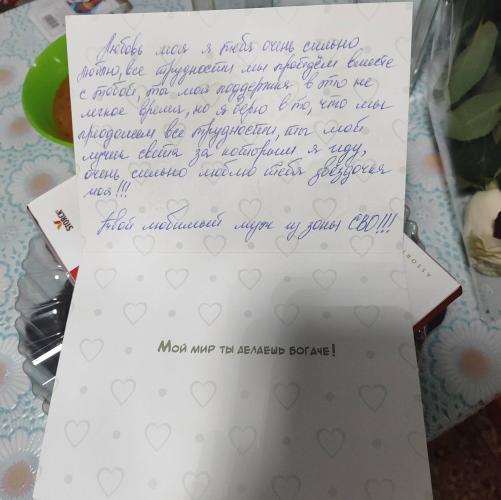 Любовь моя я тебя очень сильно
люблю, все трудности мы пройдём вместе
с тобой, ты моя поддержка в это не
лёгкое время, но я верю в то, что мы
преодолеем все трудности, ты мой
лучик света за которым я иду,
очень сильно люблю тебя звёздочка
моя!!!
Твой любимый муж из зоны СВО!!!
Мой мир ты делаешь богаче!
STORCK